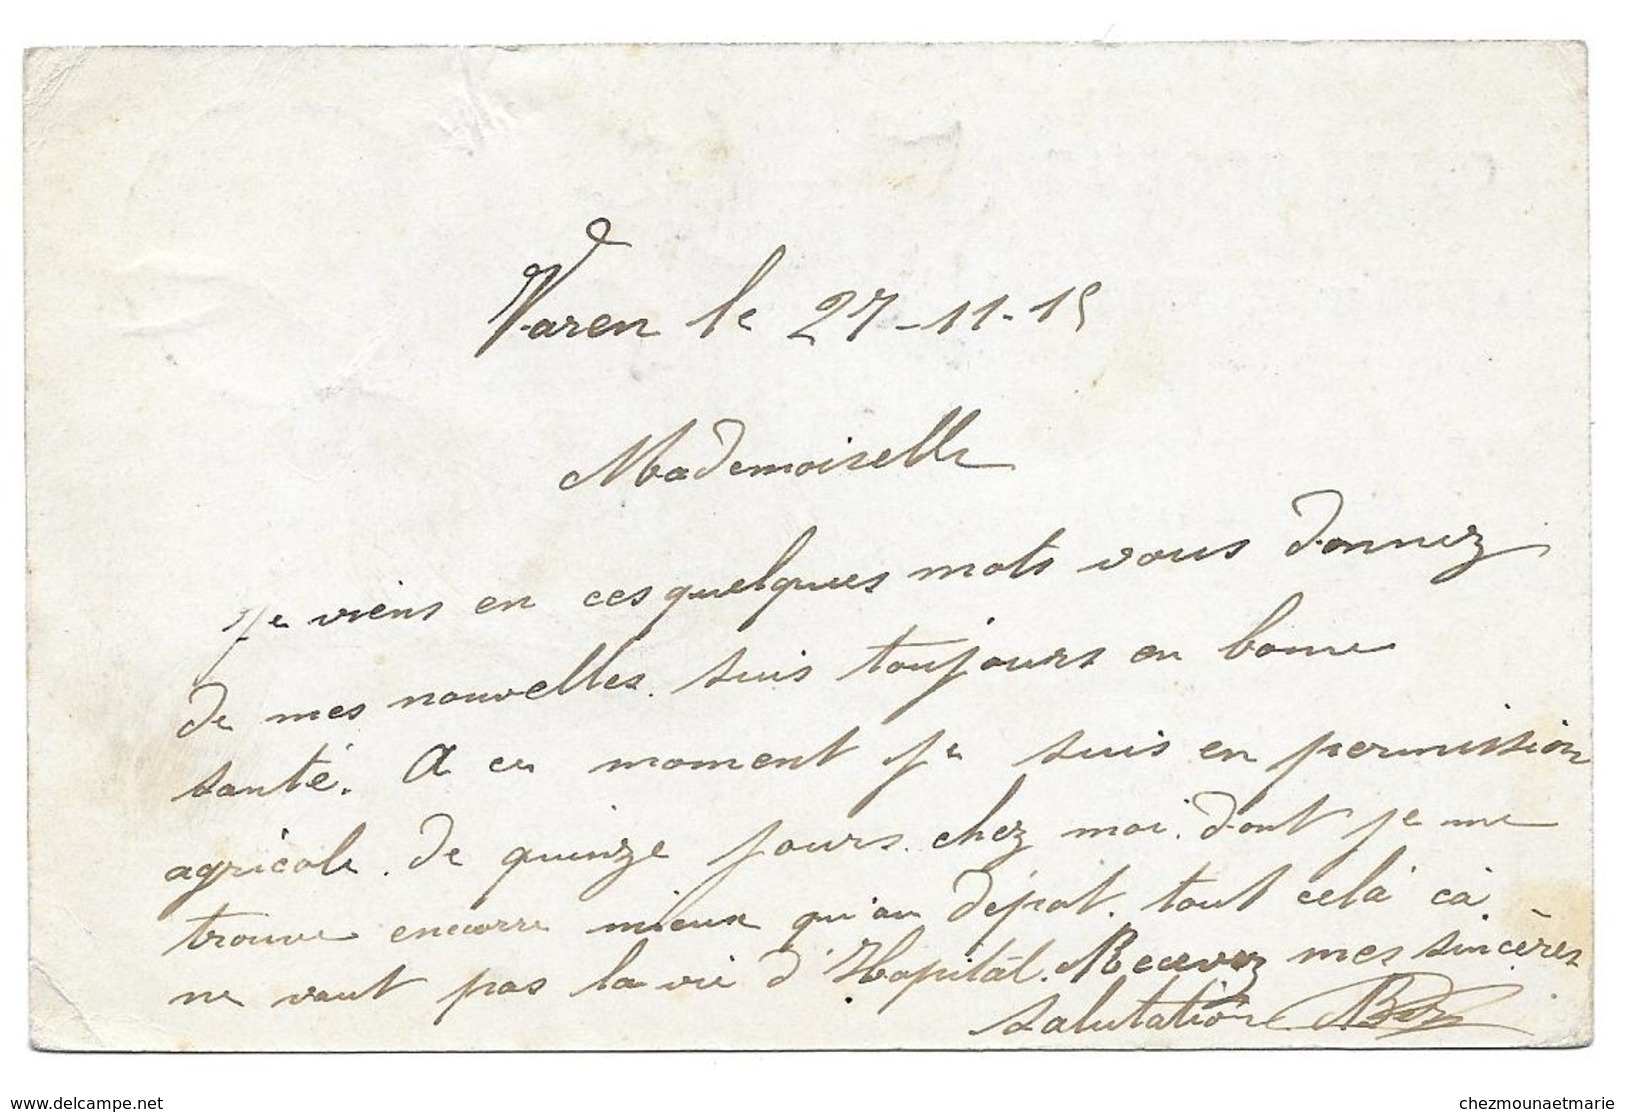 Varen le 27-11-15
Mademoiselle
Je viens en ces quelques mots vous donnez
de mes nouvelles. suis toujours en bonne
santé. A ce moment je suis en permission
agricole. de quinze jours. chez moi. dont je me
trouve encorre mieux qu'au dépot. tout celà cà
ne vaut pas la vie d'Hopitàl. Recevez mes sincères
salutation
www.delcampe.net
chezmounaetmarie